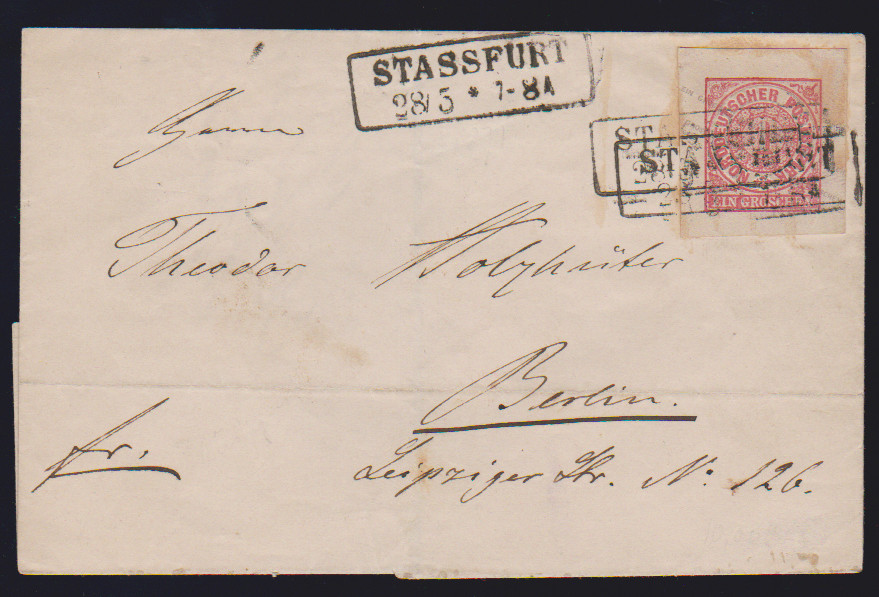 STASSFURT
28/5 * 7-8A
NORDDEUTSCHER POST
EIN GROSCHEN
Herrn
Theodor Holzhüter
Berlin.
fr.
Leipziger Str. No: 126.